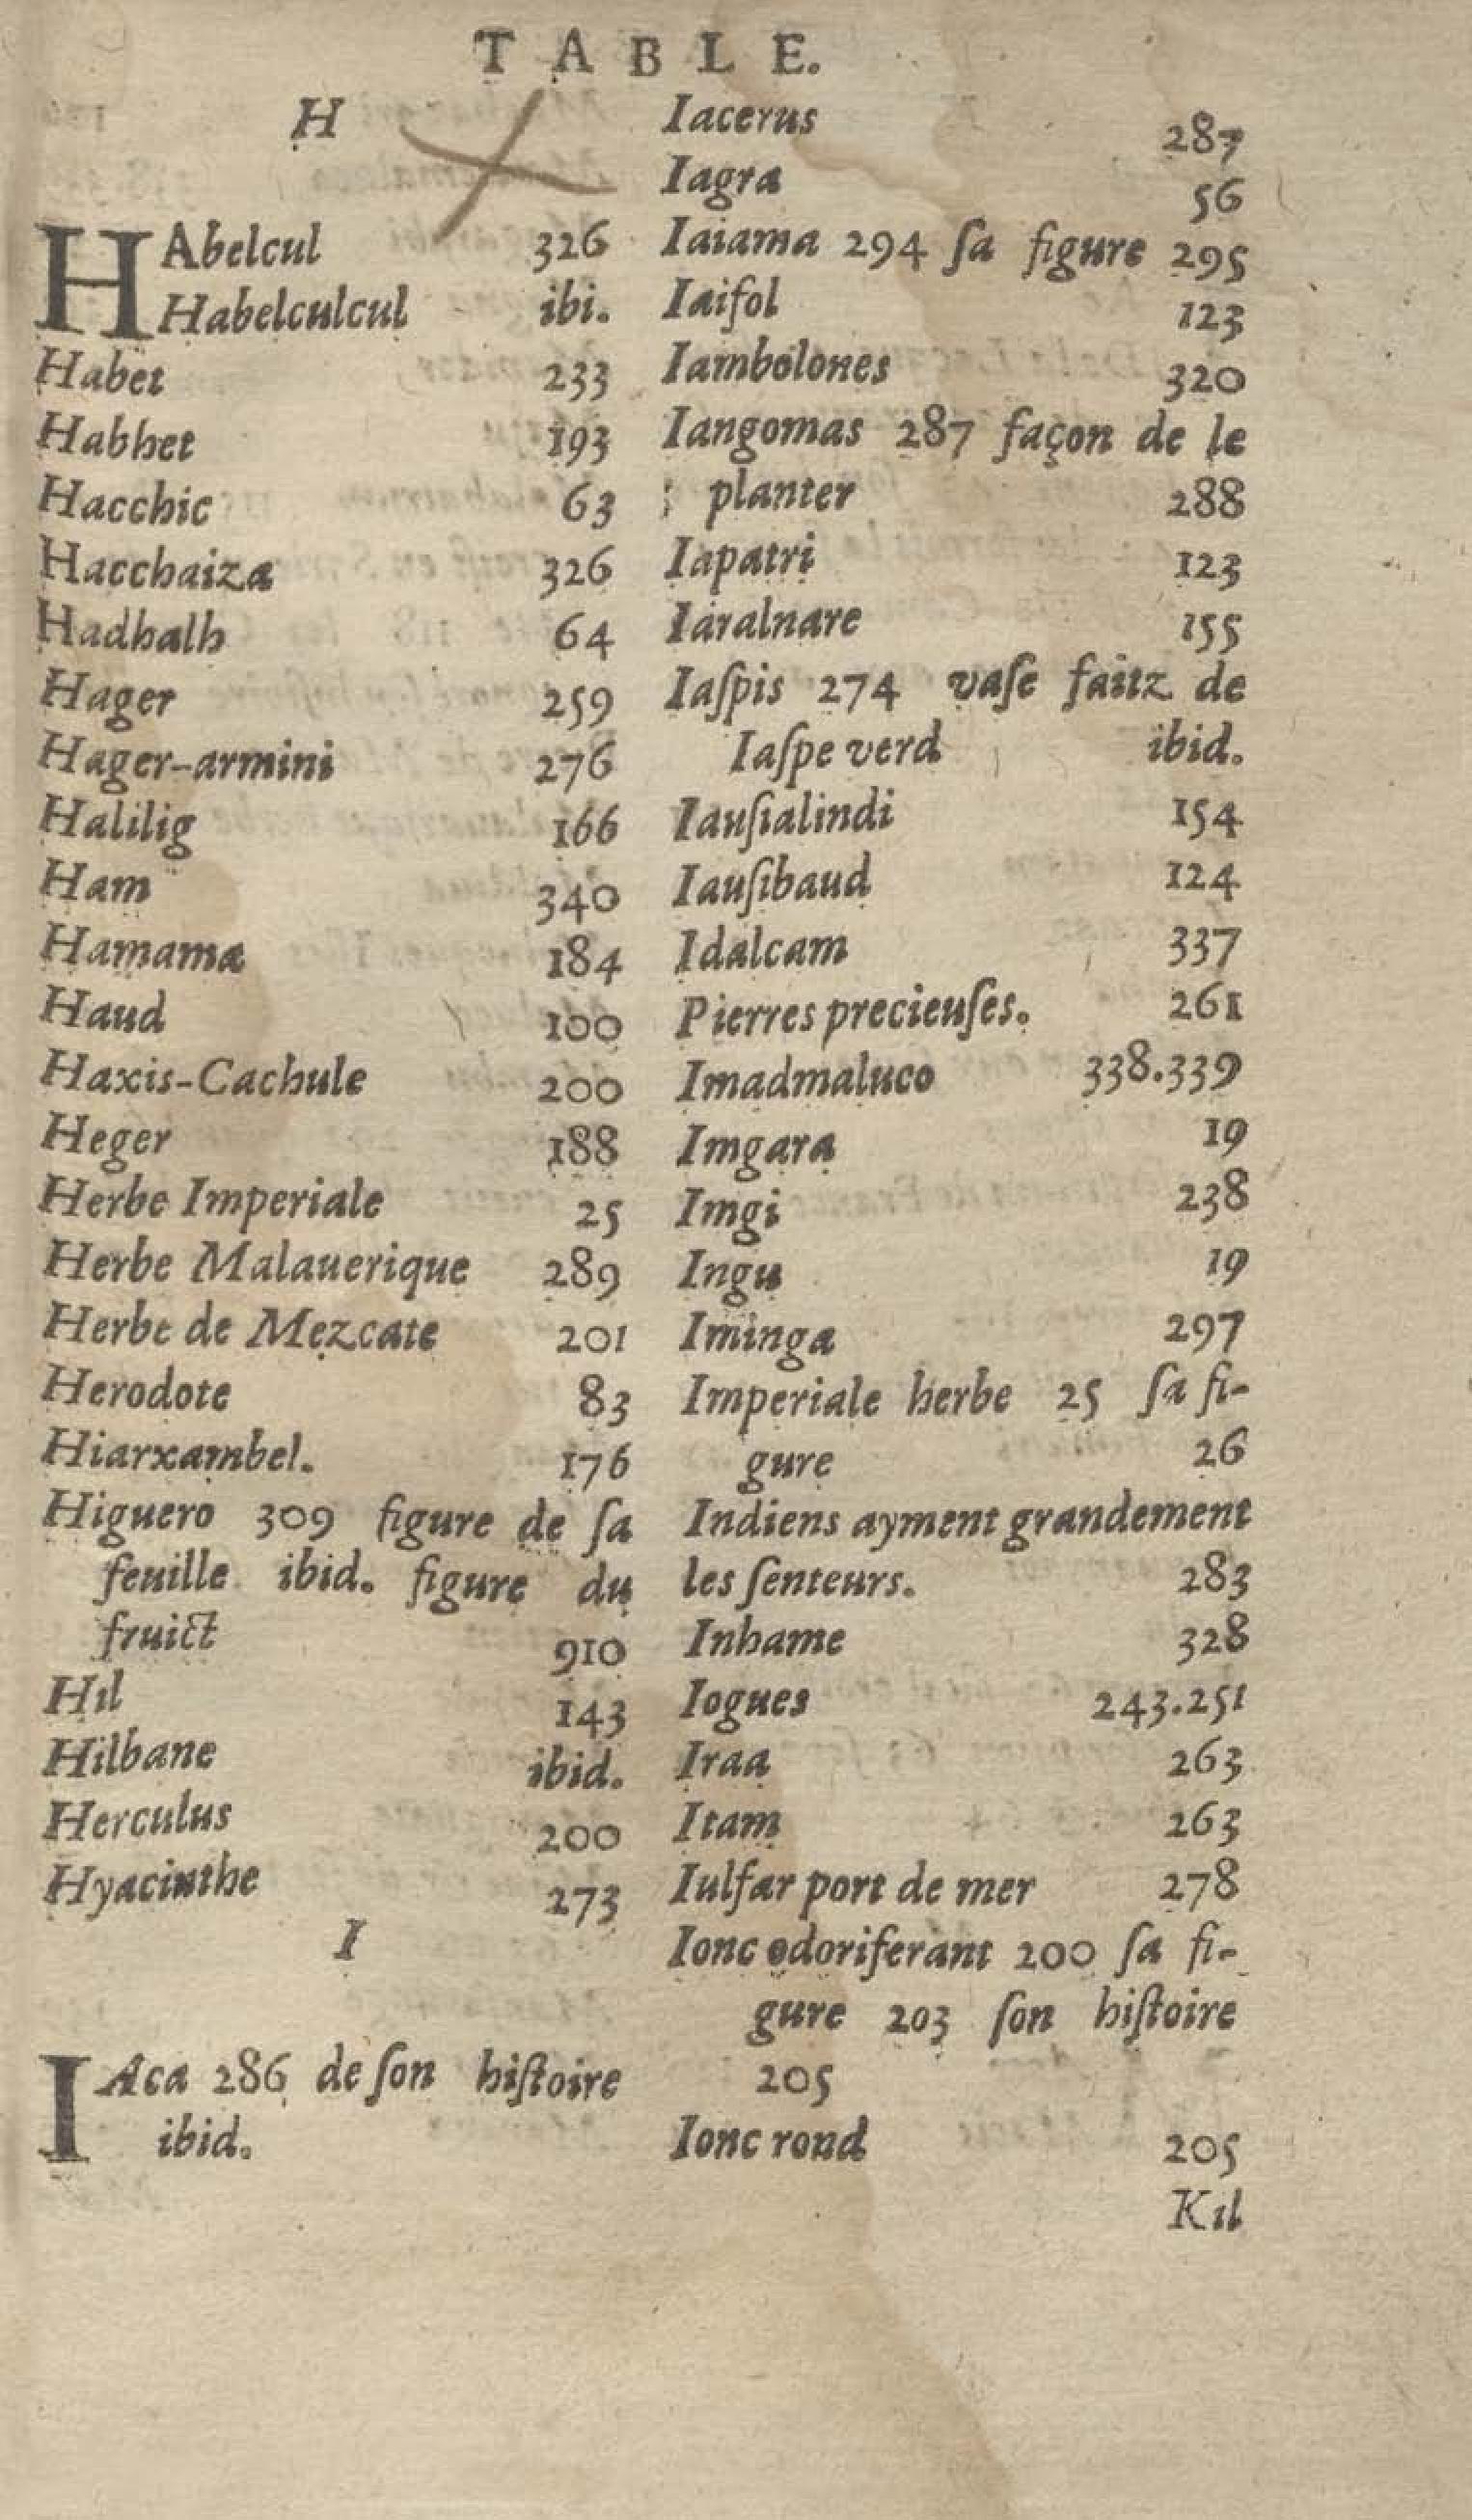 TABLE.
H
HAbelcul 326
Habelculcul ibi.
Habet 233
Habhet 193
Hacchic 63
Hacchaiza 326
Hadhalh 64
Hager 259
Hager-armini 276
Halilig 166
Ham 340
Hamama 184
Haud 100
Haxis-Cachule 200
Heger 188
Herbe Imperiale 25
Herbe Malauerique 289
Herbe de Mezcate 201
Herodote 83
Hiarxambel. 176
Higuero 309 figure de ſa
feuille ibid. figure du
fruict 910
Hil 143
Hilbane ibid.
Herculus 200
Hyacinthe 273
I
IAca 286 de ſon hiſtoire
ibid.
Iacerus 287
Iagra 56
Iaiama 294 ſa figure 295
Iaifol 123
Iambolones 320
Iangomas 287 façon de le
planter 288
Iapatri 123
Iaralnare 155
Iaſpis 274 vaſe faitz de
Iaſpe verd ibid.
Iauſialindi 154
Iauſibaud 124
Idalcam 337
Pierres precieuſes. 261
Imadmaluco 338.339
Imgara 19
Imgi 238
Ingu 19
Iminga 297
Imperiale herbe 25 ſa fi-
gure 26
Indiens ayment grandement
les ſenteurs. 283
Inhame 328
Iogues 243.251
Iraa 263
Itam 263
Iulfar port de mer 278
Ionc odoriferant 200 ſa fi-
gure 203 ſon hiſtoire
205
Ionc rond 205
Kil